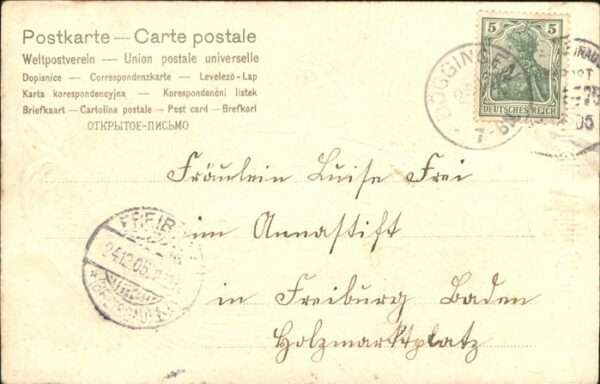 Postkarte — Carte postale
Weltpostverein — Union postale universelle
Dopisnice — Correspondenzkarte — Levelező-Lap
Karta korespondencyjna — Korespondenční listek
Briefkaart — Cartolina postale — Post card — Brefkort
ОТКРЫТОЕ-ПИСЬМО
5 5
DEUTSCHES REICH
DÖGGINGEN
Fräulein Luise Frei
im Annastift
in Freiburg Baden
Holzmarktplatz
FREIB
24.12.05